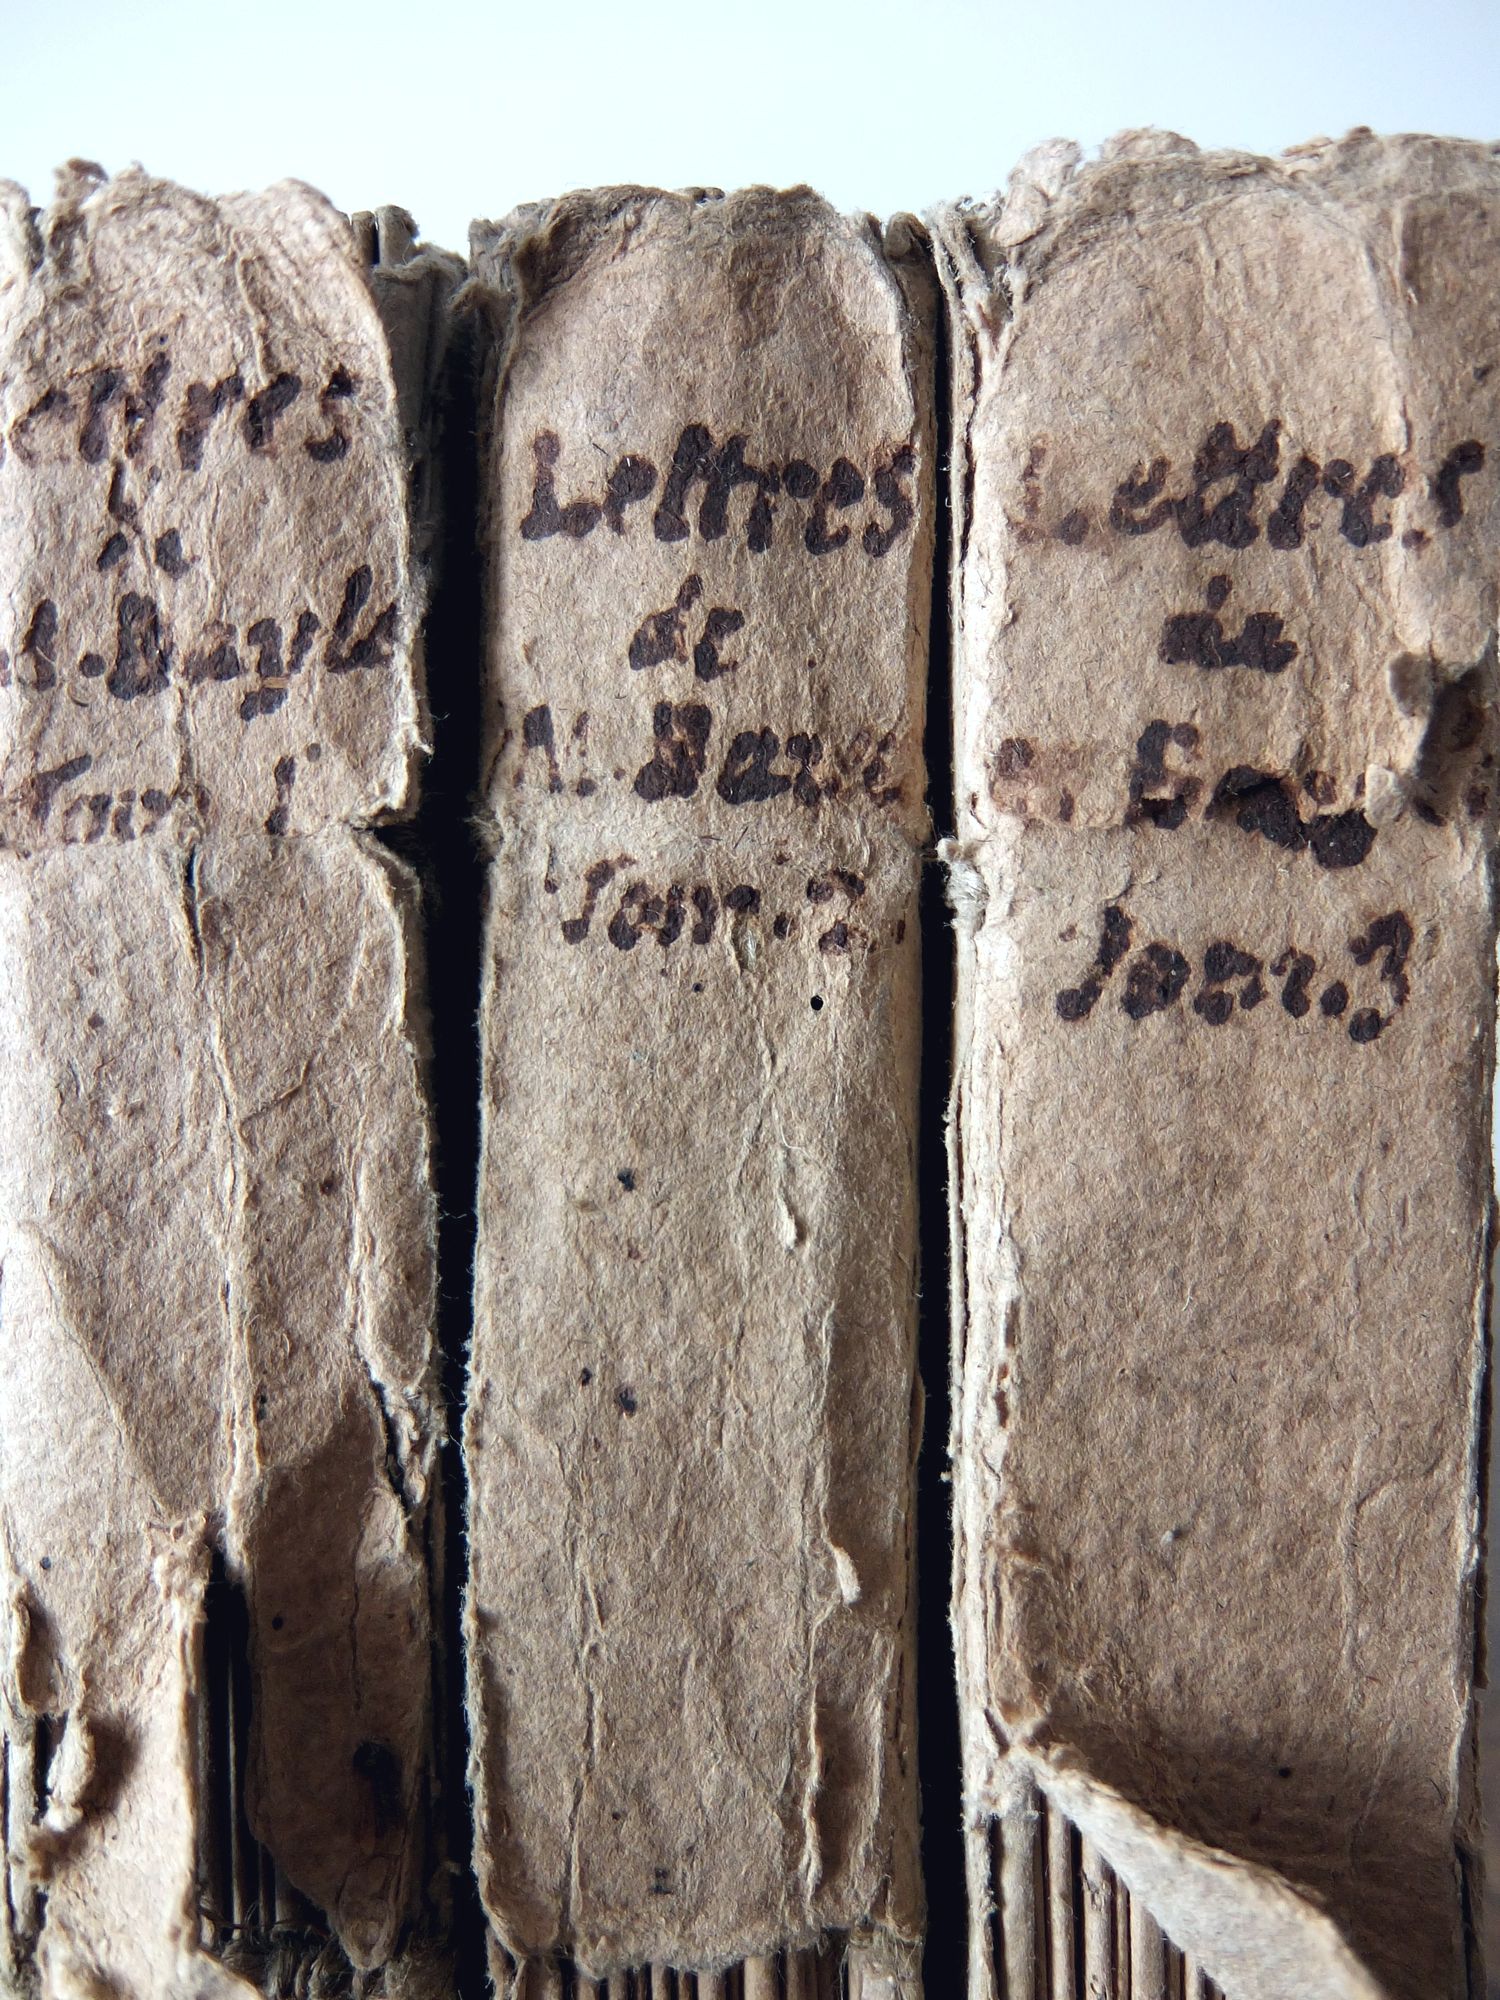 Lettres
de
M. Bayle
Tom. 1
Lettres
de
M. Bayle
Tom. 2.
Lettres
de
M. Bayle
Tom. 3